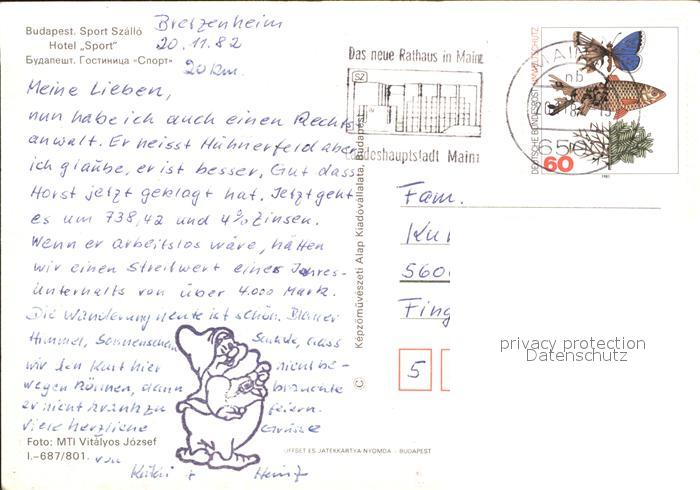 Budapest. Sport Szálló
Hotel „Sport"
Будапешт. Гостиница «Спорт»
Bretzenheim
20.11.82
20 km.
Meine Lieben,
nun habe ich auch einen Rechts
anwalt. Er heisst Hühnerfeld aber
ich glaube, er ist besser. Gut dass
Horst jetzt geklagt hat. Jetzt geht
es um 738,42 und 4% Zinsen.
Wenn er arbeitslos wäre, hätten
wir einen Streitwert eines Jahres-
unterhalts von über 4.000 Mark.
Die Wanderung heute ist schön. Blauer
Himmel, Sonnenschein Schade, dass
wir den Kurt hier nicht be-
wegen können, dann brauchte
er nicht krank zu feiern.
Viele herzliche Grüsse
von
Käthi + Heinz
Foto: MTI Vitályos József
I.-687/801.
OFFSET ÉS JÁTÉKKÁRTYA NYOMDA - BUDAPEST
© Képzőművészeti Alap Kiadóvállalata, Budapest
Das neue Rathaus in Mainz
SZ
Landeshauptstadt Mainz
MAINZ
nb
650
DEUTSCHE BUNDESPOST UMWELTSCHUTZ
60
1981
Fam.
Kur
560
Fing
5
privacy protection
Datenschutz